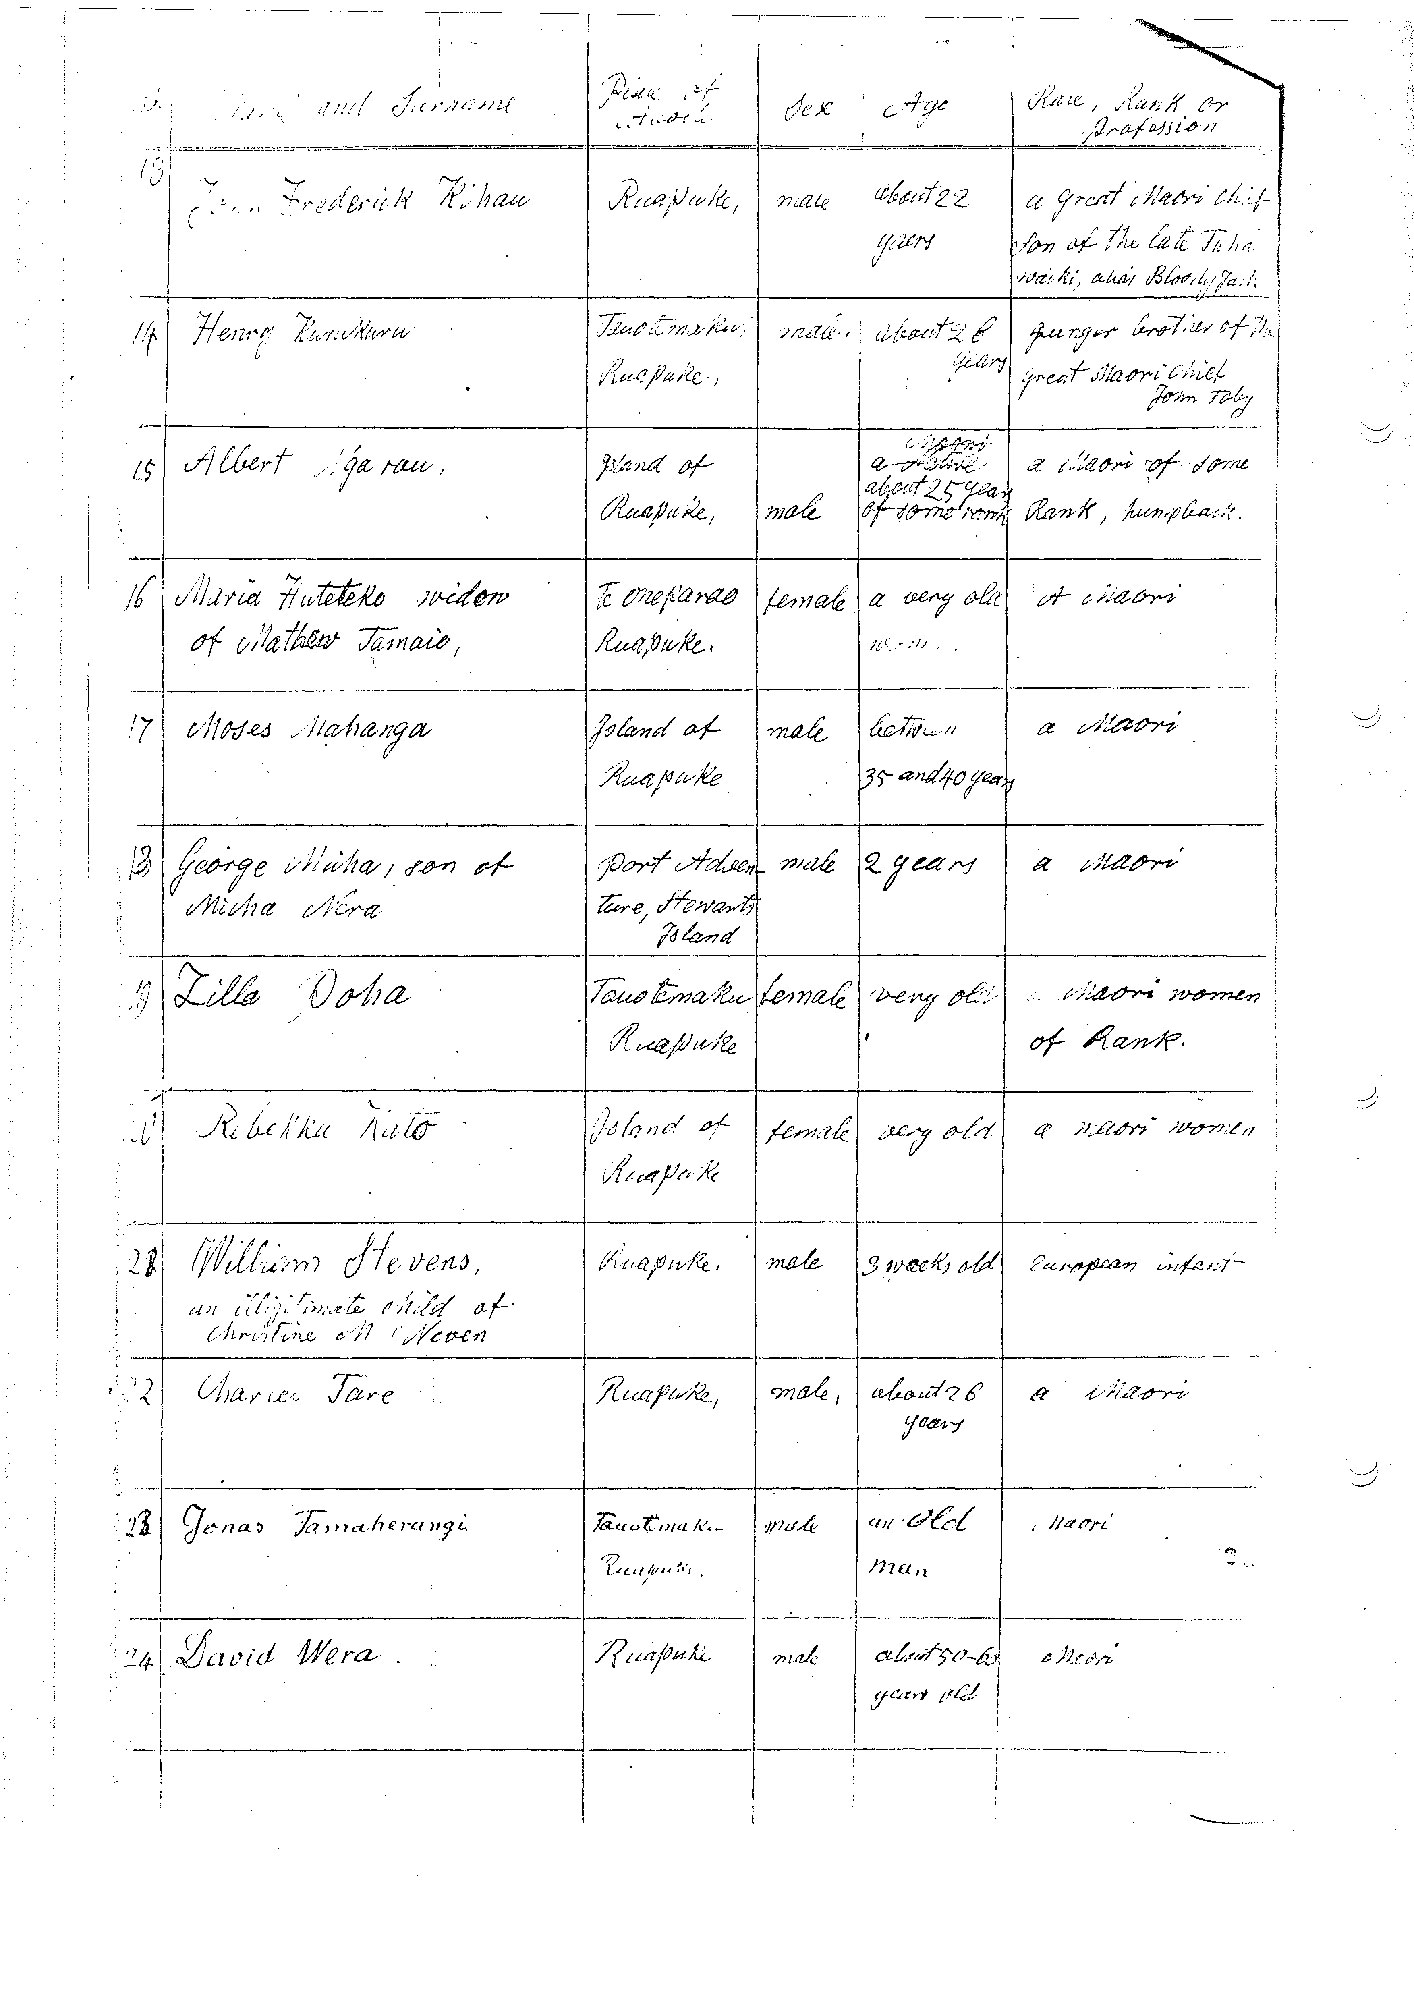 and Surname
Place of
Abode
Sex
Age
Race, Rank or
profession
13
John Frederick Kihau
Ruapuke,
male
about 22
yaers
a great Maori chief
son of the late Tuha
waiki, alias Bloody Jack
14
Henry
Tauotemaku,
Ruapuke,
male.
about 26
years
yunger brother of the
great Maori chief
John Toby
15
Albert Ngarau.
Island of
Ruapuke,
male
Maori
a native
about 25 years
of some rank
a Maori of some
Rank, humpback.
16
Maria Huteteko widow
of Mathew Tamaio,
Te oneparao
Ruapuke.
female
a very old
A Maori
17
Moses Mahanga
Island of
Ruapuke
male
between
35 and 40 years
a Maori
18
George Micha, son of
Micha Nera
port Adven
ture, Stewarts
Island
male
2 years
a Maori
19
Zilla Poha
Tauotemaku
Ruapuke
female
very old
Maori women
of Rank.
Rebekka Kato
Island of
Ruapuke
female
very old
a maori women
21
William Stevens,
an illigitimate child of
Christine Mc Neven
Ruapuke.
male
3 weeks old
European infant
22
Charles Tare
Ruapuke,
male,
about 26
years
a Maori
23
Jonas Tamaherangi
Tauotemaku
Ruapuke.
male
an old
man
Maori
24
David Wera
Ruapuke
male
about 50-60
years old
Maori